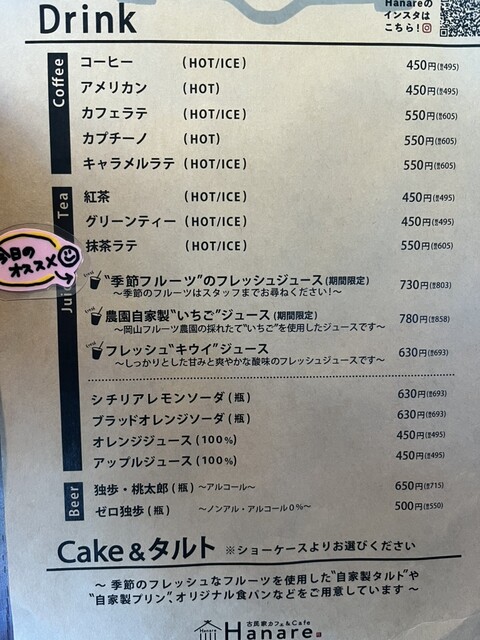 Drink
Hanareの
インスタは
こちら!
Coffee
コーヒー (HOT/ICE) 450円(税込495)
アメリカン (HOT) 450円(税込495)
カフェラテ (HOT/ICE) 550円(税込605)
カプチーノ (HOT) 550円(税込605)
キャラメルラテ (HOT/ICE) 550円(税込605)
Tea
紅茶 (HOT/ICE) 450円(税込495)
グリーンティー (HOT/ICE) 450円(税込495)
抹茶ラテ (HOT/ICE) 550円(税込605)
今日の
オススメ
"季節フルーツ"のフレッシュジュース(期間限定) 730円(税込803)
～季節のフルーツはスタッフまでお尋ねください!～
農園自家製"いちご"ジュース(期間限定) 780円(税込858)
～岡山フルーツ農園の採れたて"いちご"を使用したジュースです～
フレッシュ"キウイ"ジュース 630円(税込693)
～しっかりとした甘みと爽やかな酸味のフレッシュジュースです～
シチリアレモンソーダ(瓶) 630円(税込693)
ブラッドオレンジソーダ(瓶) 630円(税込693)
オレンジジュース(100%) 450円(税込495)
アップルジュース(100%) 450円(税込495)
Beer
独歩・桃太郎(瓶) ～アルコール～ 650円(税込715)
ゼロ独歩(瓶) ～ノンアル・アルコール0%～ 500円(税込550)
Cake&タルト ※ショーケースよりお選びください
～季節のフレッシュなフルーツを使用した"自家製タルト"や
"自家製プリン"、オリジナル食パンなどをご用意しています～
古民家カフェ&Cafe
Hanare